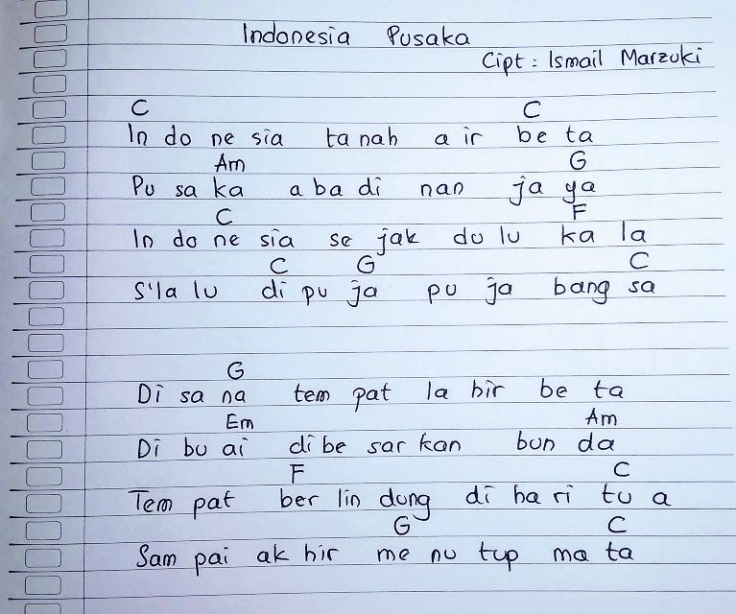 Indonesia Pusaka
Cipt : Ismail Marzuki
C C
In do ne sia ta nah a ir be ta
Am G
Pu sa ka a ba di nan ja ya
C F
In do ne sia se jak du lu ka la
C G C
S'la lu di pu ja pu ja bang sa
G
Di sa na tem pat la hir be ta
Em Am
Di bu ai di be sar kan bun da
F C
Tem pat ber lin dung di ha ri tu a
G C
Sam pai ak hir me nu tup ma ta